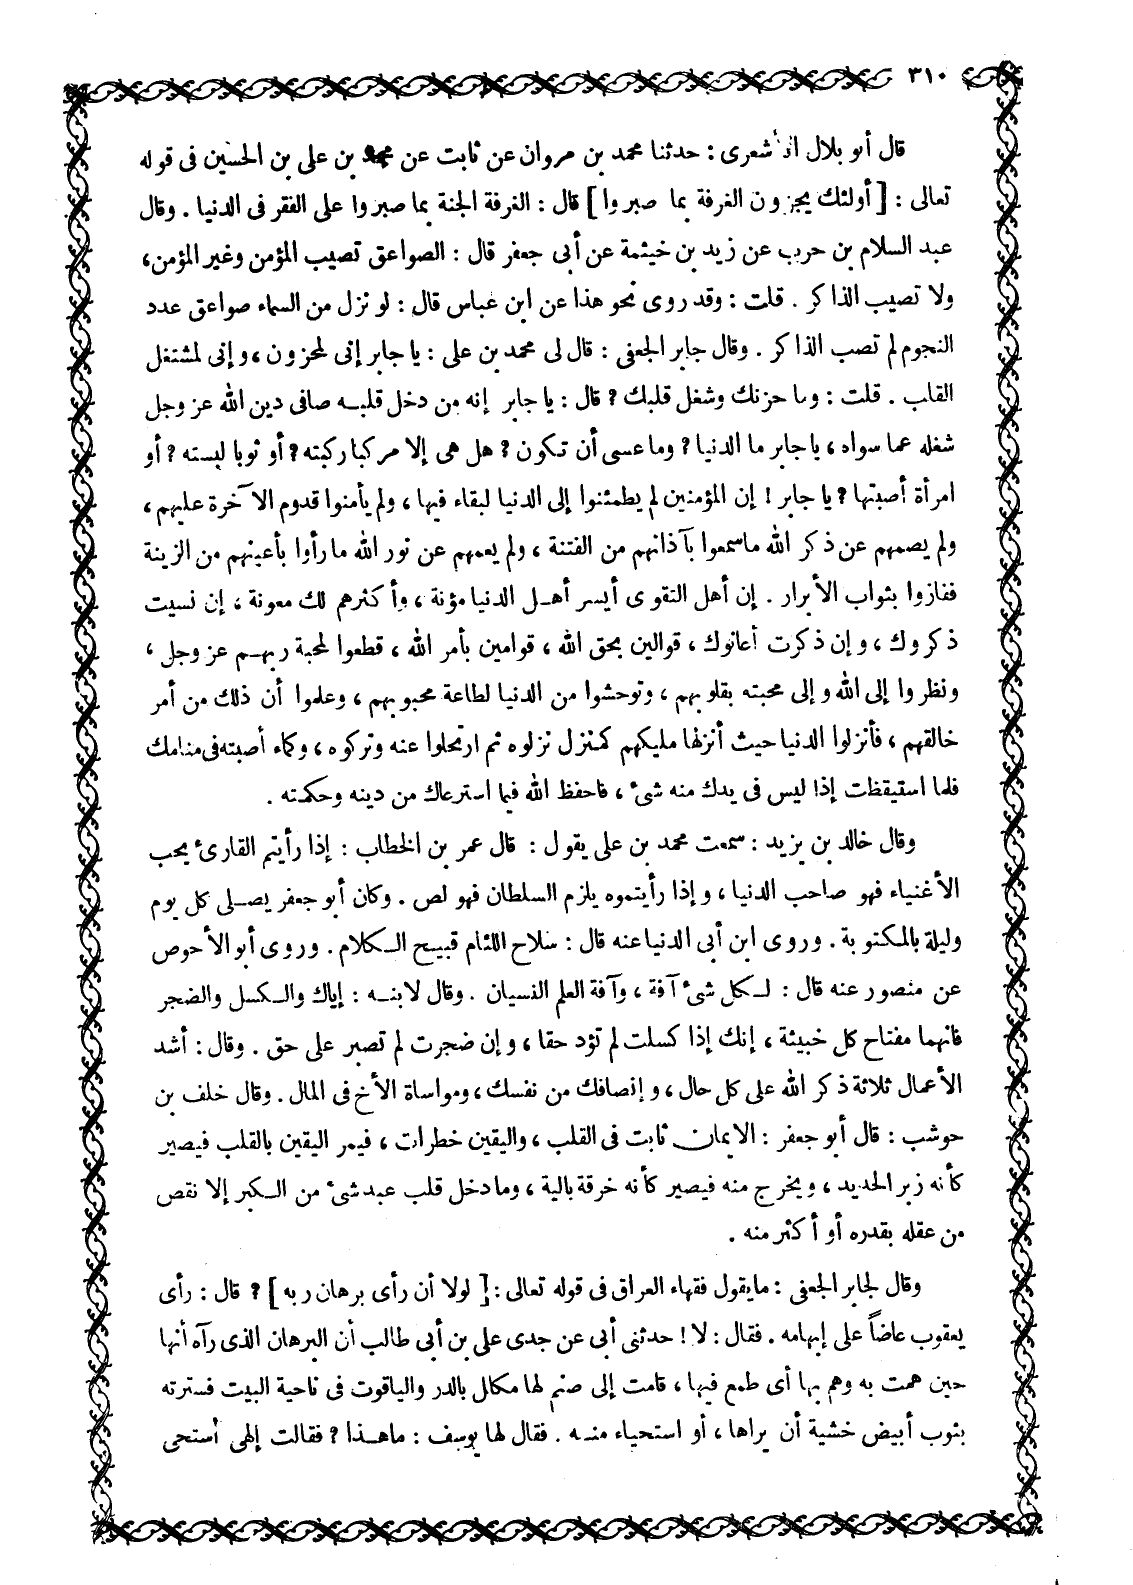 ٣١٠
قال أبو بلال الأشعرى : حدثنا محمد بن مروان عن ثابت عن محمد بن على بن الحسين فى قوله
تعالى : [ أولئك يجزون الغرفة بما صبروا ] قال : الغرفة الجنة بما صبروا على الفقر فى الدنيا . وقال
عبد السلام بن حرب عن زيد بن خيثمة عن أبى جعفر قال : الصواعق تصيب المؤمن وغير المؤمن ،
ولا تصيب الذاكر . قلت : وقد روى نحو هذا عن ابن عباس قال : لو نزل من السماء صواعق عدد
النجوم لم تصب الذاكر . وقال جابر الجعفى : قال لى محمد بن على : يا جابر إنى لمحزون ، وإنى لمشتغل
القلب . قلت : وما حزنك وشغل قلبك ? قال : يا جابر إنه من دخل قلبه صافى دين الله عز وجل
شغله عما سواه ، يا جابر ما الدنيا ? وما عسى أن تكون ? هل هى إلا مركبا ركبته ? أو ثوبا لبسته ? أو
امرأة أصبتها ? يا جابر ! إن المؤمنين لم يطمئنوا إلى الدنيا لبقاء فيها ، ولم يأمنوا قدوم الآخرة عليهم ،
ولم يصمهم عن ذكر الله ما سمعوا بآذانهم من الفتنة ، ولم يعمهم عن نور الله ما رأوا بأعينهم من الزينة
ففازوا بثواب الأبرار . إن أهل التقوى أيسر أهل الدنيا مؤنة ، وأكثرهم لك معونة ، إن نسيت
ذكروك ، وإن ذكرت أعانوك ، قوالين بحق الله ، قوامين بأمر الله ، قطعوا لمحبة ربهم عز وجل ،
ونظروا إلى الله وإلى محبته بقلوبهم ، وتوحشوا من الدنيا لطاعة محبوبهم ، وعلموا أن ذلك من أمر
خالقهم ، فأنزلوا الدنيا حيث أنزلها مليكهم كمنزل نزلوه ثم ارتحلوا عنه وتركوه ، وكماء أصبته فى منامك
فلما استيقظت إذا ليس فى يدك منه شىء ، فاحفظ الله فيما استرعاك من دينه وحكمته .
وقال خالد بن يزيد : سمعت محمد بن على يقول : قال عمر بن الخطاب : إذا رأيتم القارئ يحب
الأغنياء فهو صاحب الدنيا ، وإذا رأيتموه يلزم السلطان فهو لص . وكان أبو جعفر يصلى كل يوم
وليلة بالمكتوبة . وروى ابن أبى الدنيا عنه قال : سلاح اللئام قبيح الكلام . وروى أبو الأحوص
عن منصور عنه قال : لكل شىء آفة ، وآفة العلم النسيان . وقال لابنه : إياك والكسل والضجر
فانهما مفتاح كل خبيثة ، إنك إذا كسلت لم تؤد حقا ، وإن ضجرت لم تصبر على حق . وقال : أشد
الأعمال ثلاثة ذكر الله على كل حال ، وإنصافك من نفسك ، ومواساة الأخ فى المال . وقال خلف بن
حوشب : قال أبو جعفر : الايمان ثابت فى القلب ، واليقين خطرات ، فيمر اليقين بالقلب فيصير
كأنه زبر الحديد ، ويخرج منه فيصير كأنه خرقة بالية ، وما دخل قلب عبد شىء من الكبر إلا نقص
من عقله بقدره أو أكثر منه .
وقال لجابر الجعفى : ما يقول فقهاء العراق فى قوله تعالى : [ لولا أن رأى برهان ربه ] ? قال : رأى
يعقوب عاضاً على إبهامه . فقال : لا ! حدثنى أبى عن جدى على بن أبى طالب أن البرهان الذى رآه أنها
حين همت به وهم بها أى طمع فيها ، قامت إلى صنم لها مكلل بالدر والياقوت فى ناحية البيت فسترته
بثوب أبيض خشية أن يراها ، أو استحياء منه . فقال لها يوسف : ما هذا ? فقالت إلهى أستحى